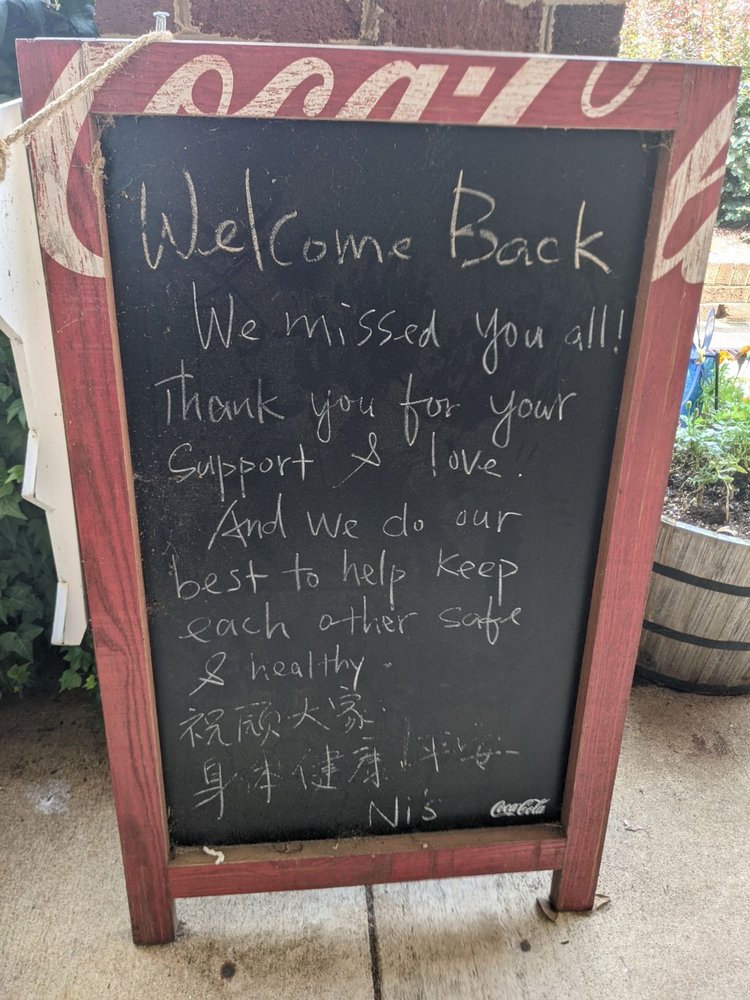 Coca-Co
Welcome Back
We missed you all!
Thank you for your
Support & love.
And we do our
best to help keep
each other safe
& healthy.
祝願大家
身体健康!平安
Ni's
Coca-Cola